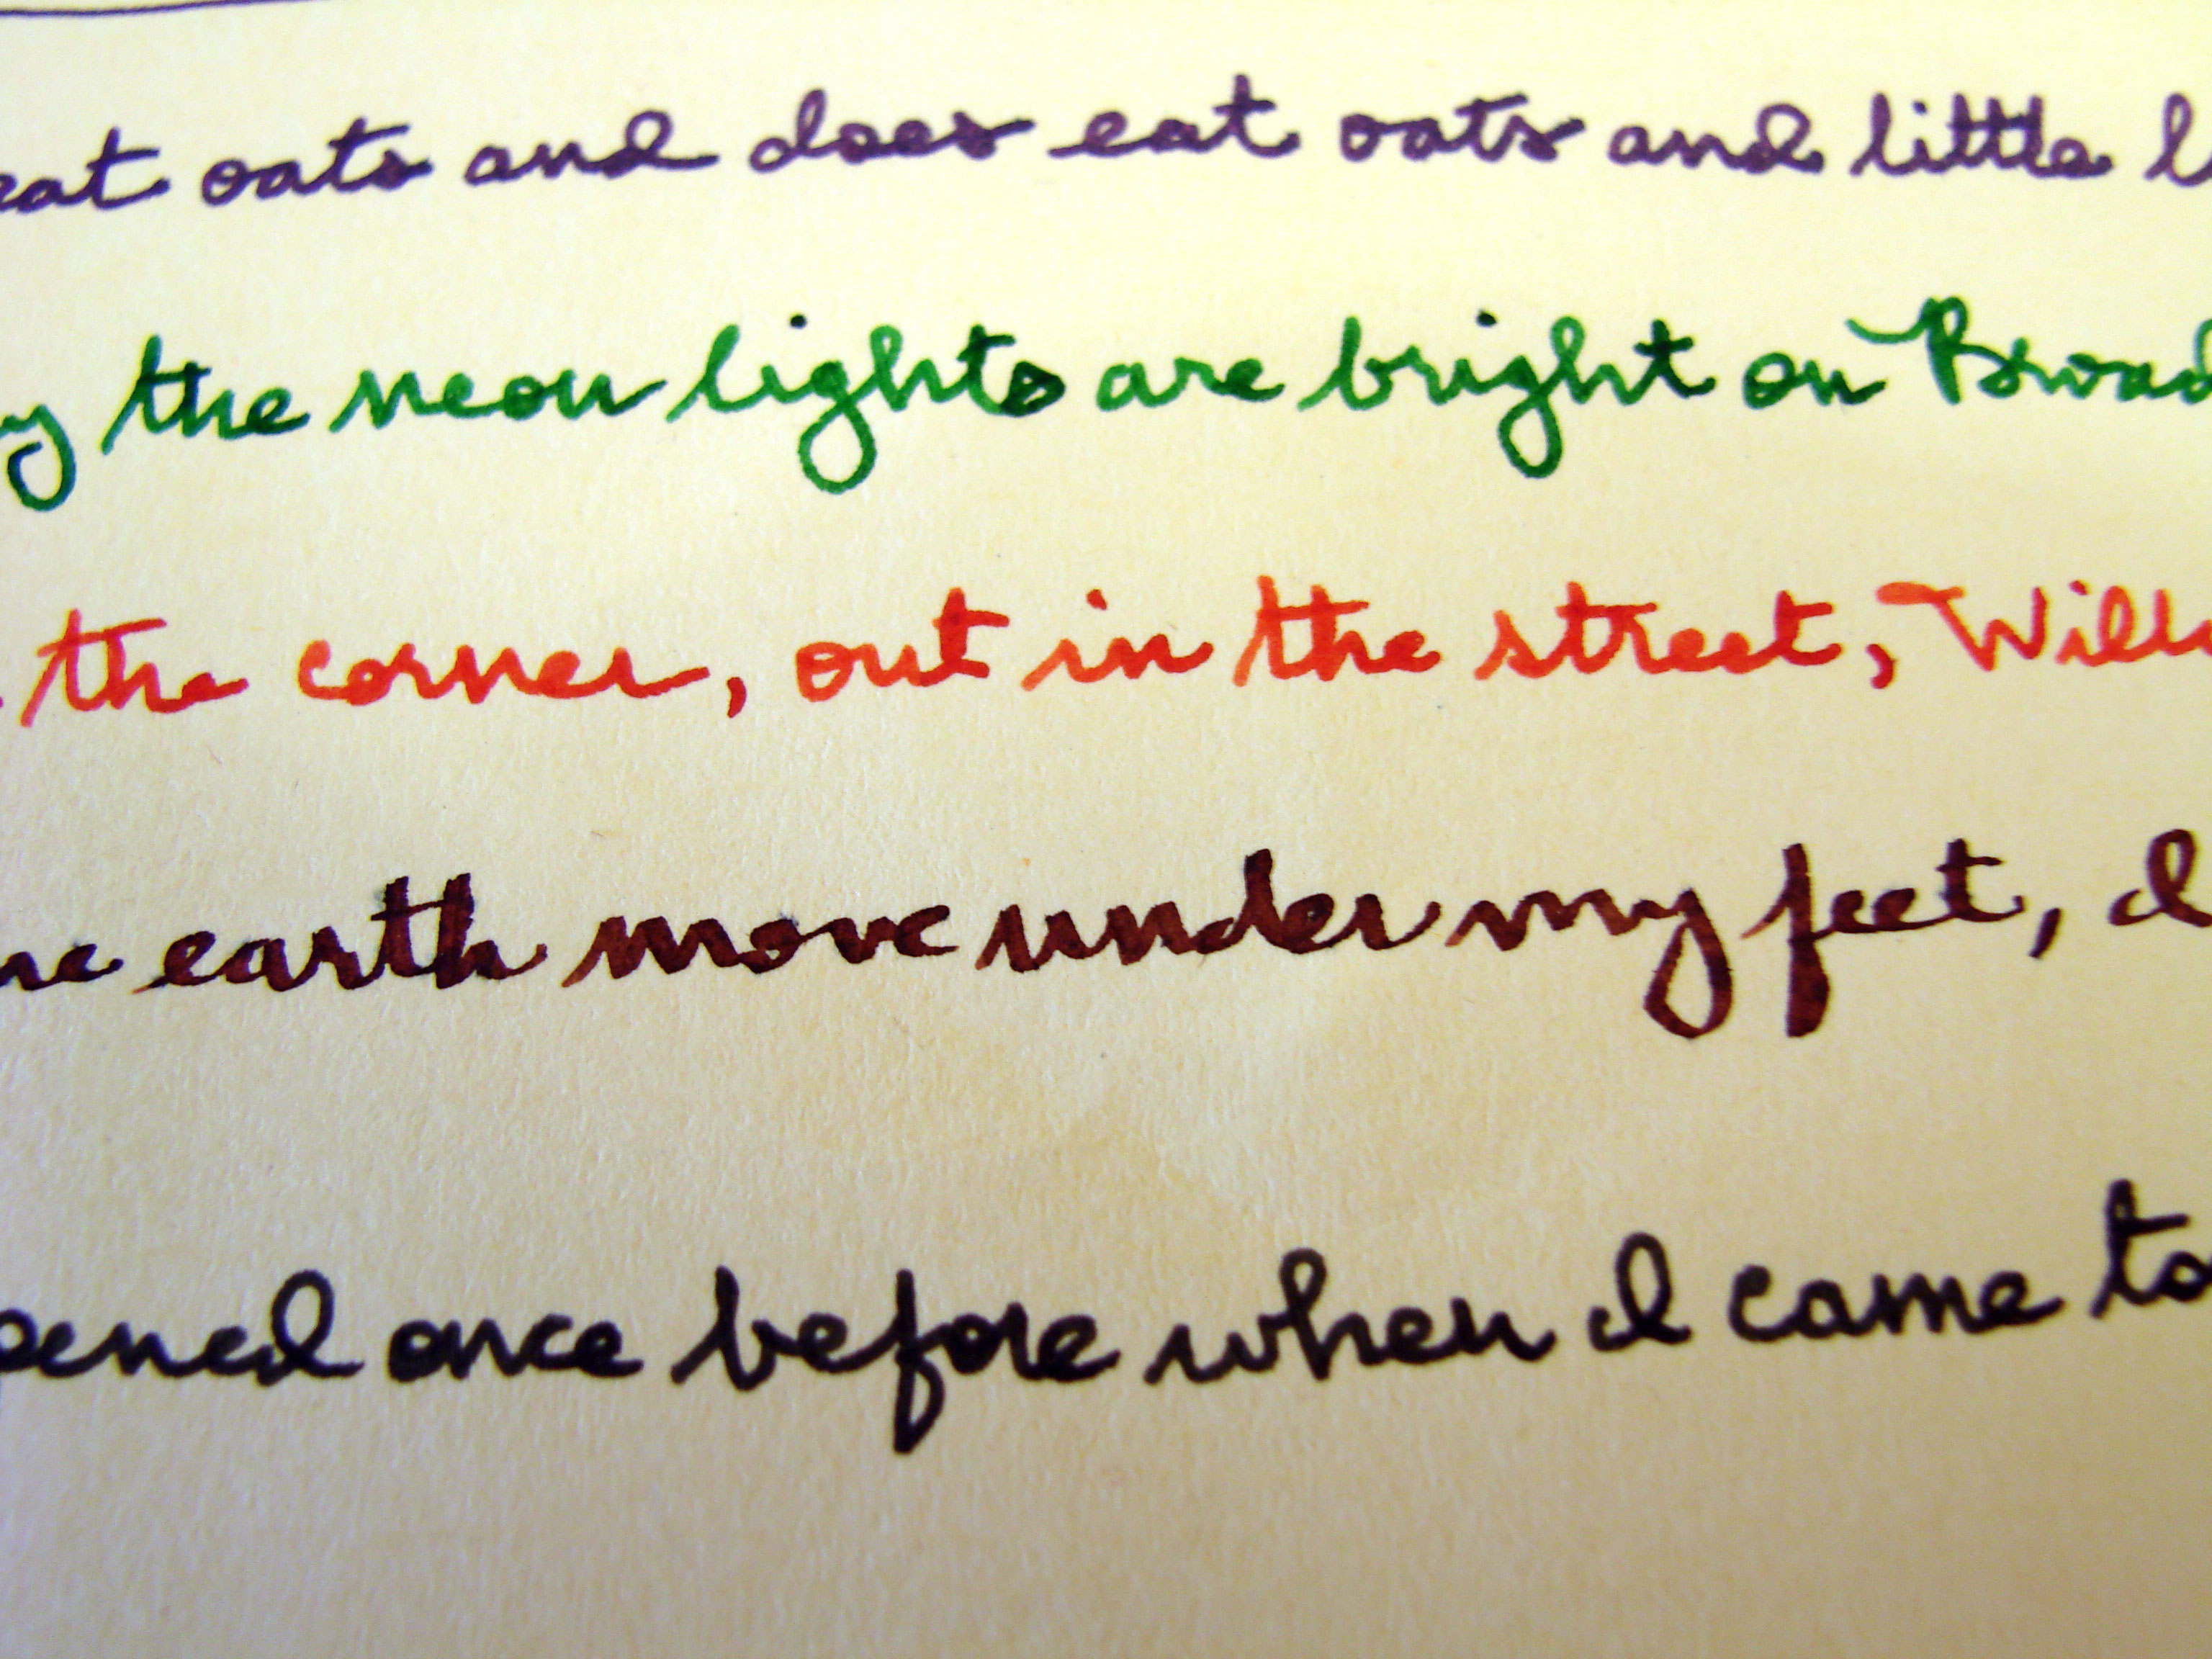 eat oats and does eat oats and little l
y the neon lights are bright on Broad
the corner, out in the street, Will
he earth move under my feet, I
pened once before when I came to